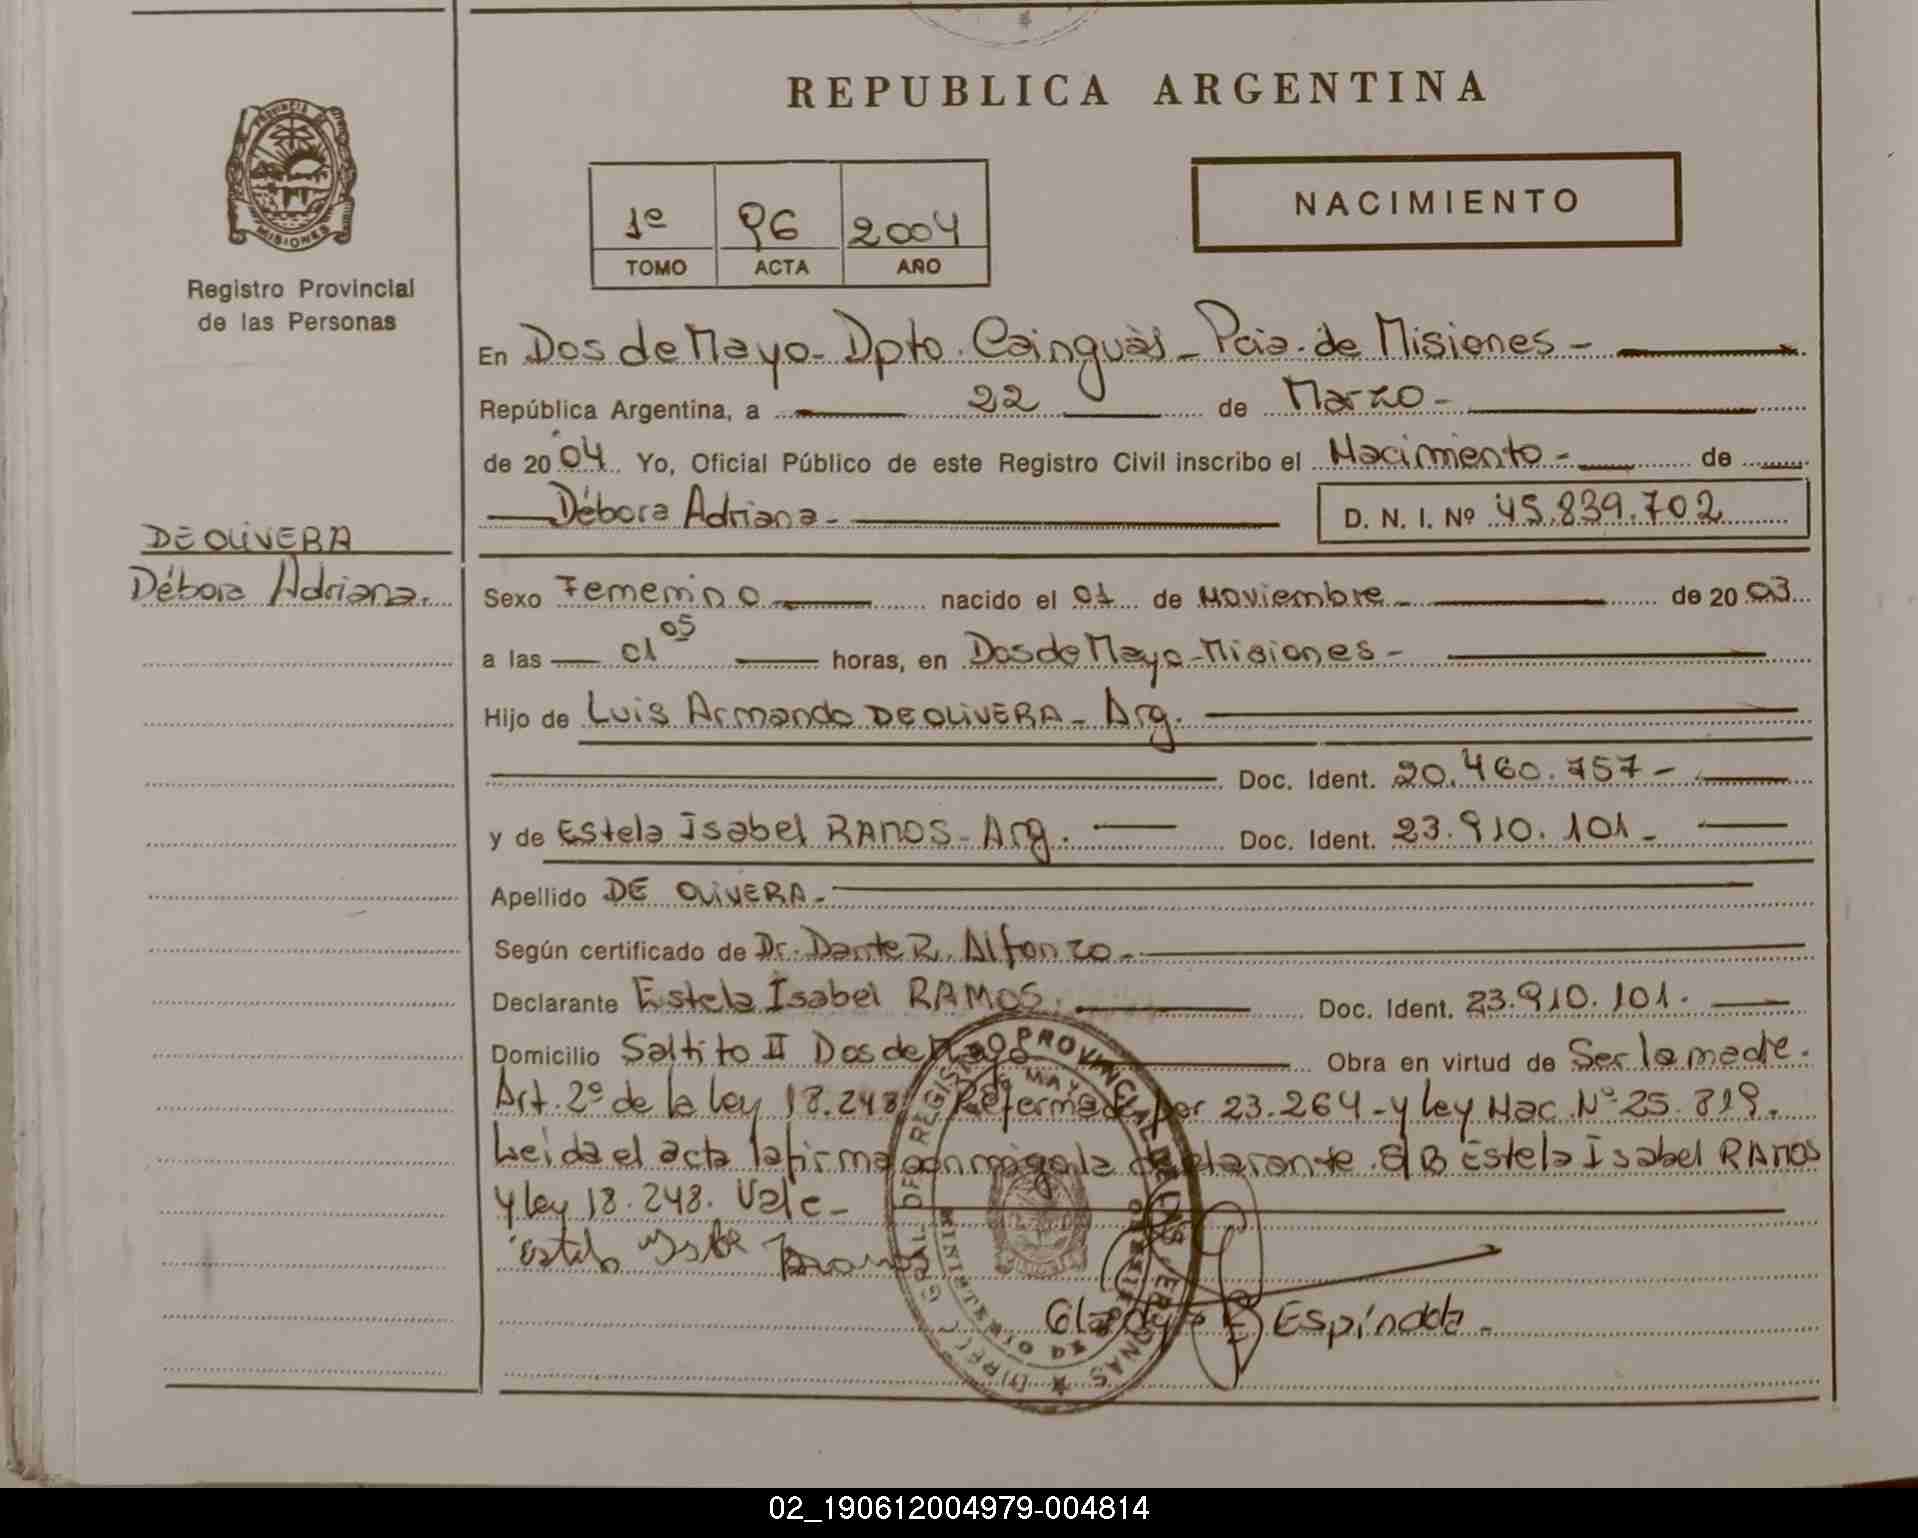 REPUBLICA ARGENTINA
PROVINCIA DE
MISIONES
Registro Provincial
de las Personas
1º 96 2004
TOMO ACTA AÑO
NACIMIENTO
En Dos de Mayo - Dpto. Cainguàs - Pcia. de Misiones -
República Argentina, a 22 de Marzo -
de 2004 Yo, Oficial Público de este Registro Civil inscribo el Nacimiento - de
Débora Adriana - D. N. I. Nº 45.839.702
DE OLIVERA
Débora Adriana.
Sexo Femenino nacido el 01 de Noviembre - de 2003
a las 01 05 horas, en Dos de Mayo - Misiones -
Hijo de Luis Armando DE OLIVERA - Arg.
Doc. Ident. 20.460.757 -
y de Estela Isabel RAMOS - Arg. Doc. Ident. 23.910.101 -
Apellido DE OLIVERA -
Según certificado de Dr. Dante R. Alfonzo -
Declarante Estela Isabel RAMOS. Doc. Ident. 23.910.101.
Domicilio Saltito II Dos de Mayo Obra en virtud de Ser la madre.
Art. 2º de la Ley 18.248 Reformada por 23.264 - y Ley Nac. Nº 25.819.
Leida el acta la firma conmigo la declarante. S/B Estela Isabel RAMOS
y ley 18.248. Vale -
Estela Isabel Ramos
Gladys E Espíndola -
DIREC. GRAL. DE REGISTRO PROVINCIAL DE LAS PERSONAS
MINISTERIO DE
02_190612004979-004814